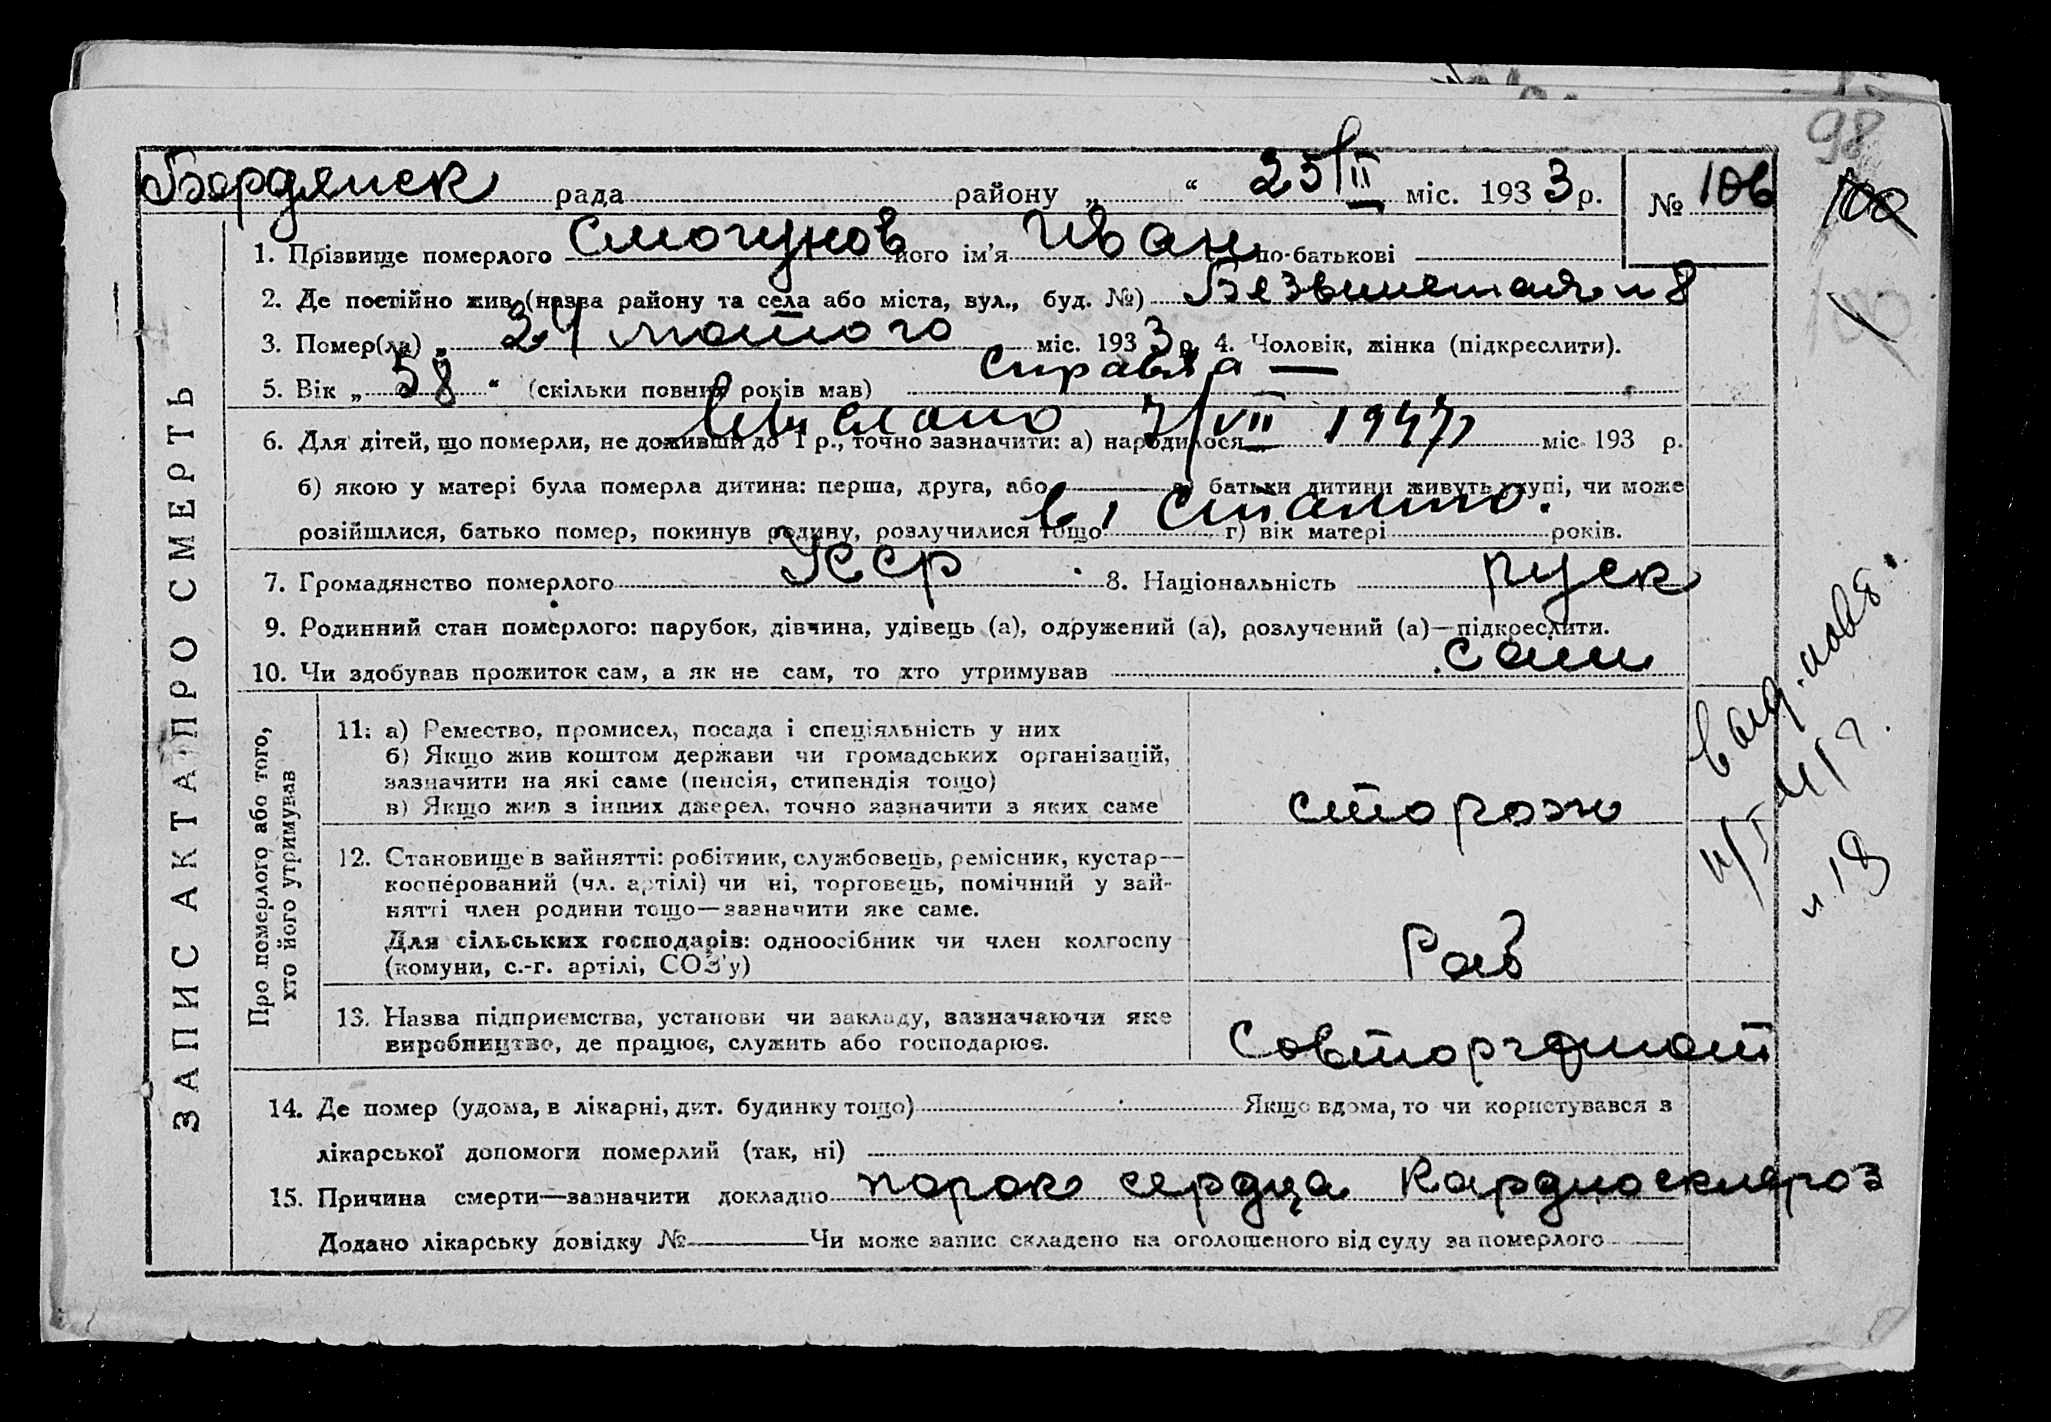 98
Бердянск рада району „ “ 25/II міс. 1933 р. № 106 100
1. Прізвище померлого Смогунов його ім'я Иван по-батькові
2. Де постійно жив (назва району та села або міста, вул., буд. №) н 8
3. Помер(ла) „ 24 лютого міс. 1933 р. 4. Чоловік, жінка (підкреслити).
справка —
5. Вік „ 58 “ (скільки повних років мав)
выслано 7/VII 1947
6. Для дітей, що померли, не доживши до 1 р., точно зазначити: а) народилося міс. 193 р.
б) якою у матері була померла дитина: перша, друга, або в) батьки дитини живуть укупі, чи може
в г. Сталино.
розійшлися, батько помер, покинув родину, розлучилися тощо г) вік матері років.
7. Громадянство померлого УССР 8. Національність руск
9. Родинний стан померлого: парубок, дівчина, удівець (а), одружений (а), розлучений (а)—підкреслити.
10. Чи здобував прожиток сам, а як не сам, то хто утримував сам
ЗАПИС АКТА ПРО СМЕРТЬ
Про померлого або того,
хто його утримував
11. а) Ремество, промисел, посада і спеціяльність у них
б) Якщо жив коштом держави чи громадських організацій,
зазначити на які саме (пенсія, стипендія тощо)
в) Якщо жив з інших джерел, точно зазначити з яких саме сторож
12. Становище в зайнятті: робітник, службовець, ремісник, кустар—
кооперований (чл. артілі) чи ні, торговець, помічний у зай-
нятті член родини тощо—зазначити яке саме.
Для сільських господарів: одноосібник чи член колгоспу
(комуни, с.-г. артілі, СОЗ'у) Раб
13. Назва підприємства, установи чи закладу, зазначаючи яке
виробництво, де працює, служить або господарює.
14. Де помер (удома, в лікарні, дит. будинку тощо) Якщо вдома, то чи користувався з
лікарської допомоги померлий (так, ні)
15. Причина смерти—зазначити докладно порок сердца Кардиосклероз
Додано лікарську довідку № Чи може запис складено на оголошеного від суду за померлого
выд. повт.
н. 18